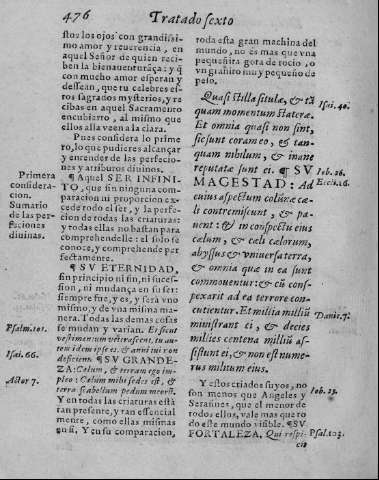 476
Tratado sexto
stos los ojos con grandissi-
mo amor y reuerencia, en
aquel Señor de quien reciben
la bienauenturãça: y q̃
con mucho amor esperan y
dessean, que tu celebres es-
tos sagrados mysterios, y re
cibas en aquel Sacramento
encubierto, al mismo que
ellos alla veen a la clara.
Pues considera lo prime
ro, lo que pudieres alcançar
y entender de las perfecio-
nes y atributos diuinos.
¶ Aquel SER INFINI-
TO, que sin ninguna com-
paracion ni proporcion ex-
cede todo el ser, y la perfe-
cion de todas las criaturas:
y todas ellas no bastan para
comprehendelle: el solo se
conoce, y comprehende per
fectamente.
¶ SV ETERNIDAD,
sin principio ni fin, ni suces-
sion, ni mudança en su ser:
siempre fue, y es, y será vno
mismo, y de vna misma ma-
nera. Y todas las demas cosas
se mudan y varian. Et sicut
vestimentum veterascent, tu au-
tem idem ipse es. & anni tui non
deficient. ¶ SV GRANDE-
ZA: Cælum, & terram ego im-
pleo: Cælum mihi sedes est, &
terra scabellum pedum meorũ.
Y en todas las criaturas està
tan presente, y tan essencial
mente, como ellas mismas
en si. Y en su comparacion,
Primera
considera-
cion.
Sumario
de las per-
fecciones
diuinas.
Psalm. 101.
Isai. 66.
Actor 7.
toda esta gran machina del
mundo, no es mas que vna
pequeñita gota de rocio, o
vn granito muy pequeño de
peso.
Quasi stilla situlæ, & tã
quam momentum stateræ.
Et omnia quasi non sint,
sic sunt coram eo, & tan-
quam nihilum, & inane
reputatæ sunt ei. ¶ SV
MAGESTAD: Ad
cuius aspectum colũnæ cæ-
li contremiscunt, & pa-
uent: & in conspectu eius
cælum, & cæli cælorum,
abyssus & vniuersa terra,
& omnia quæ in ea sunt
commouentur: & cũ cons-
pexarit ad ea terrore con-
cutientur. Et millia milliũ
ministrant ei, & decies
milies centena milliũ as-
sistunt ei, & non est nume-
rus militum eius.
Y estos criados suyos, no
son menos que Angeles y
Serafines, que el menor de
todos ellos, vale mas que to
do este mundo visible. ¶ SV
FORTALEZA, Qui respi-
cit
Isai. 40.
Iob. 26.
Eccli. 16.
Danie. 7.
Iob. 25.
Psal. 103.